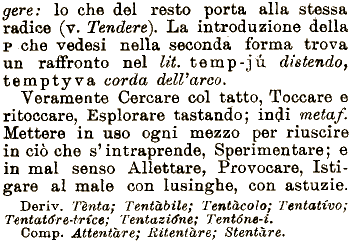 gere: lo che del resto porta alla stessa
radice (v. Tendere). La introduzione della
P che vedesi nella seconda forma trova
un raffronto nel lit. temp-jú distendo,
temptyva corda dell'arco.
Veramente Cercare col tatto, Toccare e
ritoccare, Esplorare tastando; indi metaf.
Mettere in uso ogni mezzo per riuscire
in ciò che s'intraprende, Sperimentare; e
in mal senso Allettare, Provocare, Isti-
gare al male con lusinghe, con astuzie.
Deriv. Tènta; Tentàbile; Tentàcolo; Tentatívo;
Tentatóre-tríce; Tentazióne; Tentóne-i.
Comp. Attentàre; Ritentàre; Stentàre.